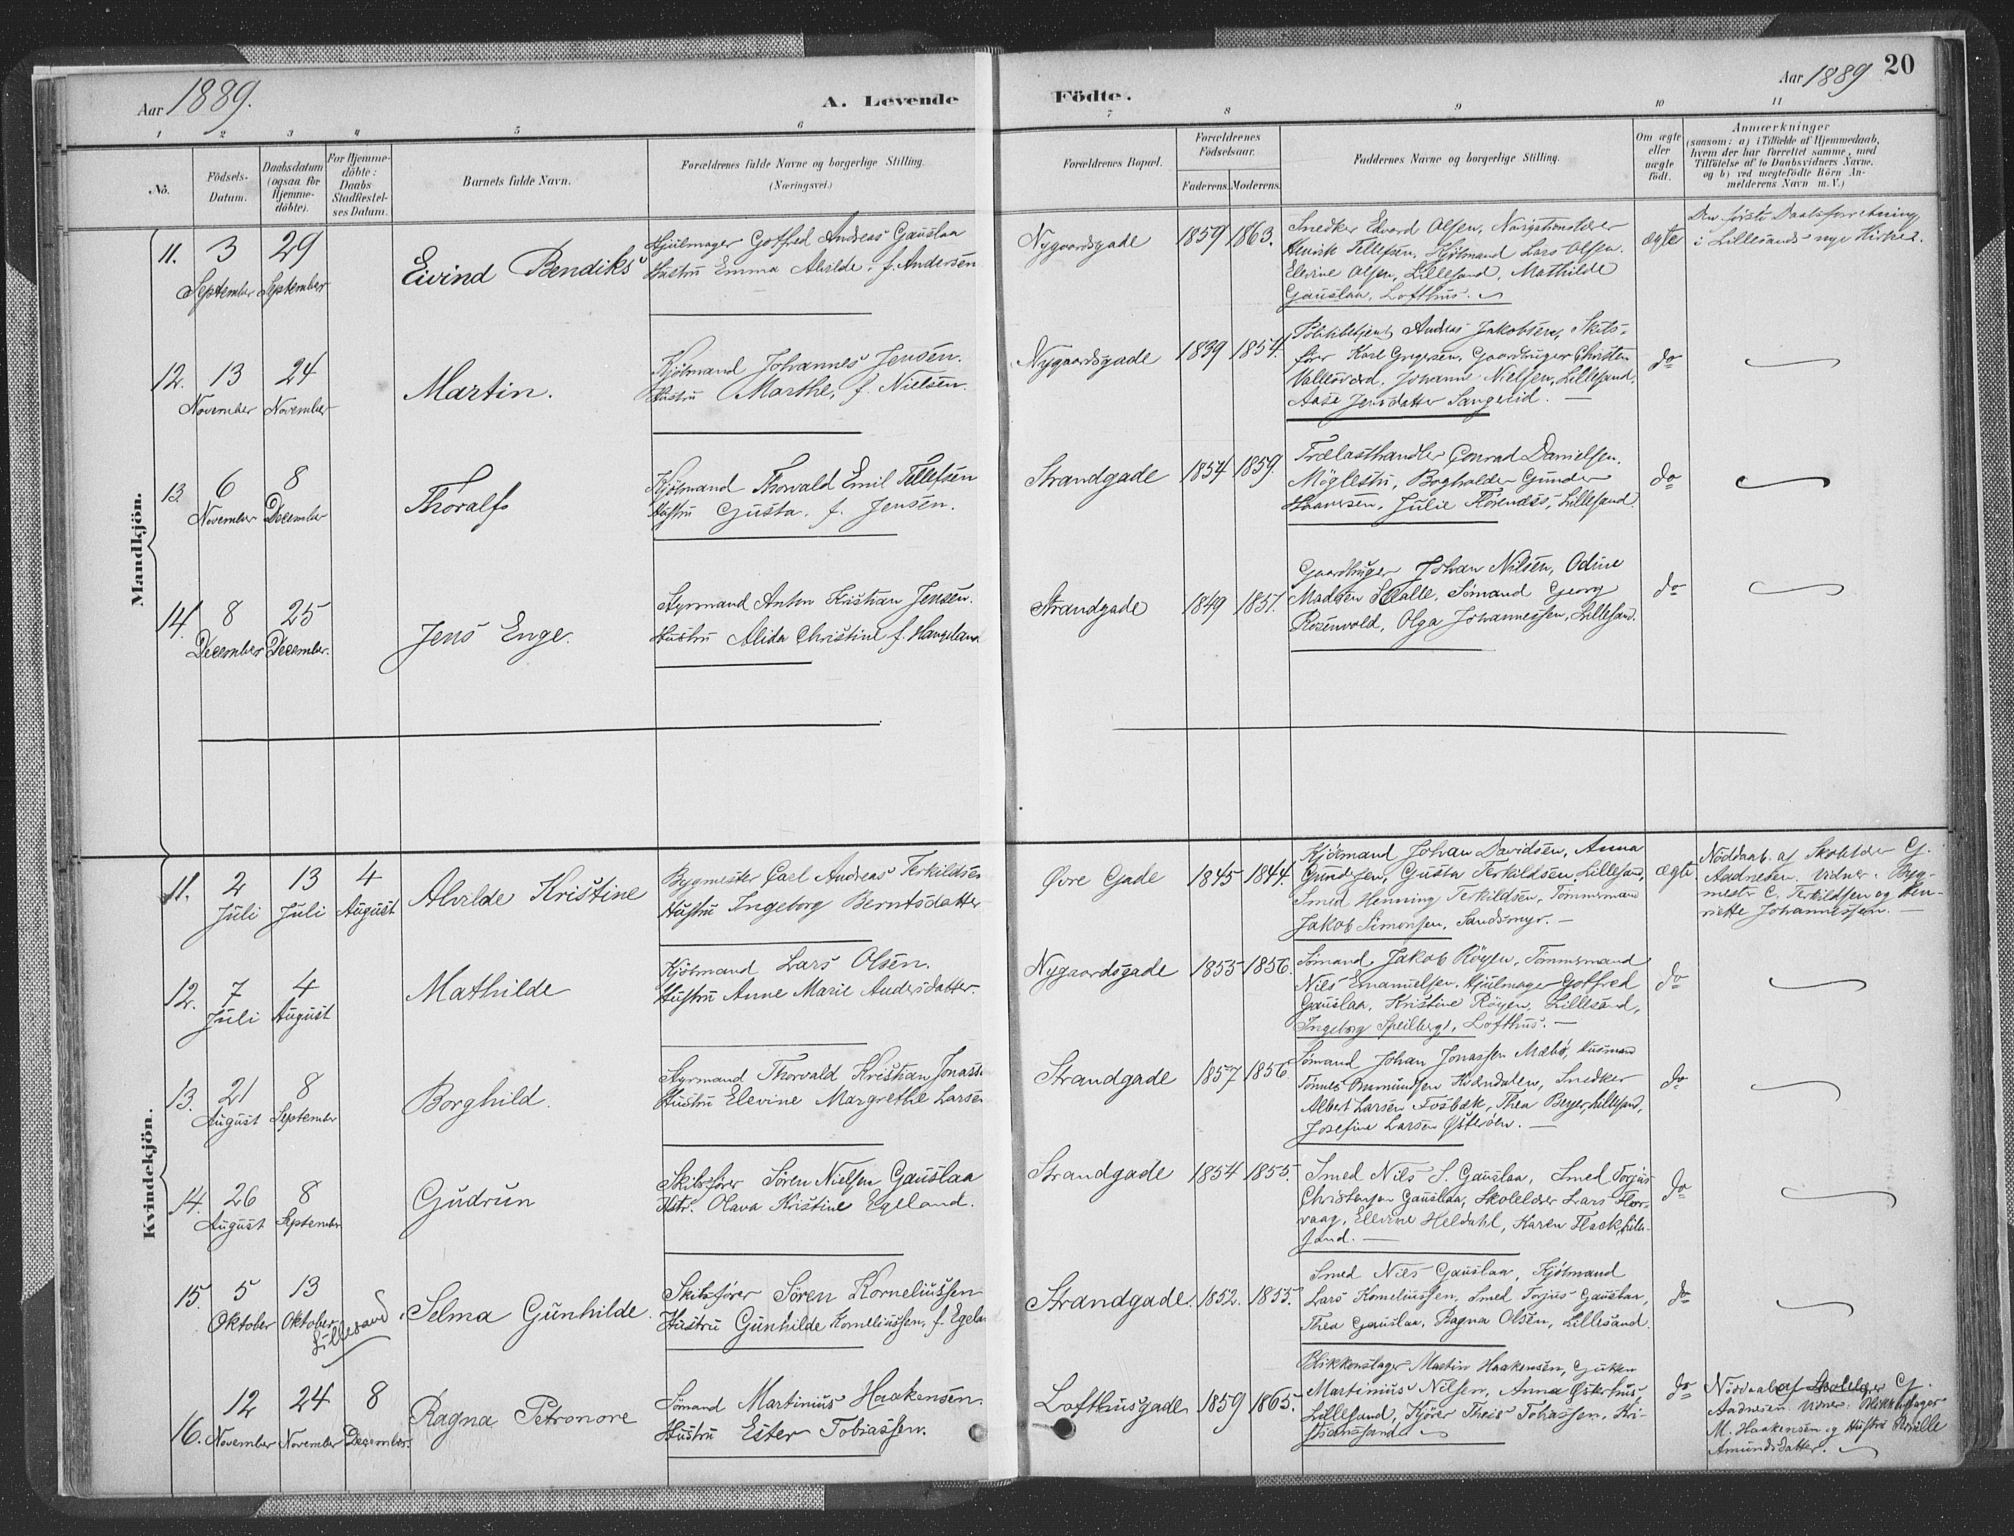 Aar 1889.
A. Levende
Födte.
Aar 1889
20
1 2 3 4 5 6 7 8 9 10 11
No.
Födsels-Datum.
Daabsdatum (ogsaa for Hjemme-döbte).
For Hjemme-döbte: Daabs Stadfæstel-ses Datum.
Barnets fulde Navn.
Forældrenes fulde Navne og borgerlige Stilling.
(Næringsvei.)
Forældrenes Bopæl.
Forældrenes Födselsaar.
Faderens. Moderens.
Faddernes Navne og borgerlige Stilling.
Om ægte eller uægte födt.
Anmærkninger
(saasom: a) i Tilfælde af Hjemmedaab,
hvem der har forrettet samme, med
Tilföielse af to Daabsvidners Navne,
og b) ved uægtefödte Börn An-
melderens Navn m. V.)
Mandkjön.
11. 3 September 29 September
Eivind Bendiks
Hjulmager Gotfred Andreas Gauslaa
Hustru Emma Alvilde, f. Andersen
Nygaardsgade 1859 1863.
Snedker Edvard Olsen, Navigationslærer
Henrik Tellefsen, Kjöbmand Lars Olsen
Elevine Olsen, Lillesand, Mathilde
Gauslaa, Lofthus.
ægte
Den förste Daabsforretning
i Lillesands nye Kirke.
12. 13 November 24 November
Martin.
Kjöbmand Johannes Jensen.
Hustru Marthe, f. Nielsen.
Nygaardsgade 1839 1854.
Andreas Jakobsen, Skibs-
förer Karl Gregersen, Gaardbruger Christen
Vallesværd, Johanne Nielsen, Lillesand,
Aase Jensdatter Sangereid.
do
13. 6 November 8 December
Thoralf
Kjöbmand Thorvald Emil Tellefsen
Hustru Gusta, f. Jensen.
Strandgade 1854 1859.
Trælasthandler Conrad Danielsen,
Möglestu, Bogholder Gunder
Haaversen, Julie Lillesand.
do
14. 8 December 25 December.
Jens Enge.
Styrmand Anton Kristian Jensen.
Hustru Alida Christine f.
Strandgade 1849 1857.
Gaardbruger Johan Nilsen, Odine
Madsen Sömand Georg
Rosenvold, Olga Johannessen, Lillesand.
do
Kvindekjön.
11. 2 Juli 13 Juli 4 August
Alvilde Kristine
Bygmester Carl Andreas Terkildsen
Hustru Ingeborg Berntsdatter
Övre Gade 1845 1844.
Kjöbmand Johan Davidsen, Anna
Gundersen, Gusta Terkildsen Lillesand,
Smed Henning Terkildsen, Tömmermand
Jakob Simonsen, Sandsmyr.
ægte
Nöddaab. af Skolelder G.
Aadnesen. Vidner. Byg-
mester C. Terkildsen og Hen-
riette Johannessen.
12. 7 Juli 4 August
Mathilde
Kjöbmand Lars Olsen.
Hustru Anne Marie Andersdatter.
Nygaardsgade 1855 1856.
Sömand Jakob Röyen, Tömmermand
Nils Emanuelsen, Hjulmager Gotfred
Gauslaa, Kristine Röyen, Lillesand,
Ingeborg Speilberg, Lofthus.
do
13. 21 August 8 September
Borghild.
Styrmand Thorvald Kristian Jonass
Hustru Elevine Margrethe Larsen
Strandgade 1857 1856
Sömand Johan Jonassen Mæbö, Husmand
Tönnes Kvændalen, Snedker
Albert Larsen Fosbæk, Thea Beyer, Lillesand,
Josefine Larsen Österöen.
do
14. 26 August 8 September
Gudrun
Skibsförer Sören Nielsen Gauslaa
Hstr. Olava Kristine Egeland.
Strandgade 1854 1855.
Smed Nils S. Gauslaa, Smed Torjus
Christensen Gauslaa, Skolelder Lars Flor-
vaag, Elevine Heldahl, Karen Flack, Lille-
sand.
do
15. 5 Oktober 13 Oktober
Lillesand
Selma Gunhilde.
Skibsförer Sören Korneliussen
Hustru Gunhilde Korneliussen, f. Egela
Strandgade. 1852. 1855.
Smed Nils Gauslaa, Kjöbmand
Lars Korneliussen, Smed Torjus Gauslaa,
Thea Gauslaa, Ragna Olsen, Lillesand.
do
16. 12 November 24 November 8 December.
Ragna Petronore
Sömand Martinius Haakensen.
Hustru Ester Tobiassen.
Lofthusgade. 1859 1865.
Blikkenslager Martin Haakensen, Gutten
Martinius Nilsen, Anna Österhus,
Lillesand, Kjörer Theis Tobiassen, Kri-
stianssand.
do
Nöddaab af Skolelder G.
Aadnesen. Vidner: Blikkenslager
M. Haakensen og Hustru Pernille
Amundsdatter.